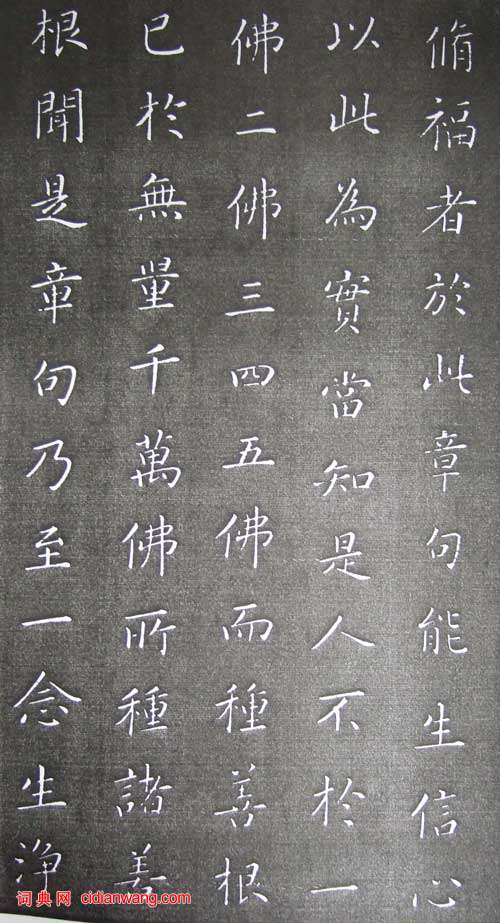 脩福者於此章句能生信心
以此為實當知是人不於一
佛二佛三四五佛而種善根
已於無量千萬佛所種諸善
根聞是章句乃至一念生淨
词典网 cidianwang.com